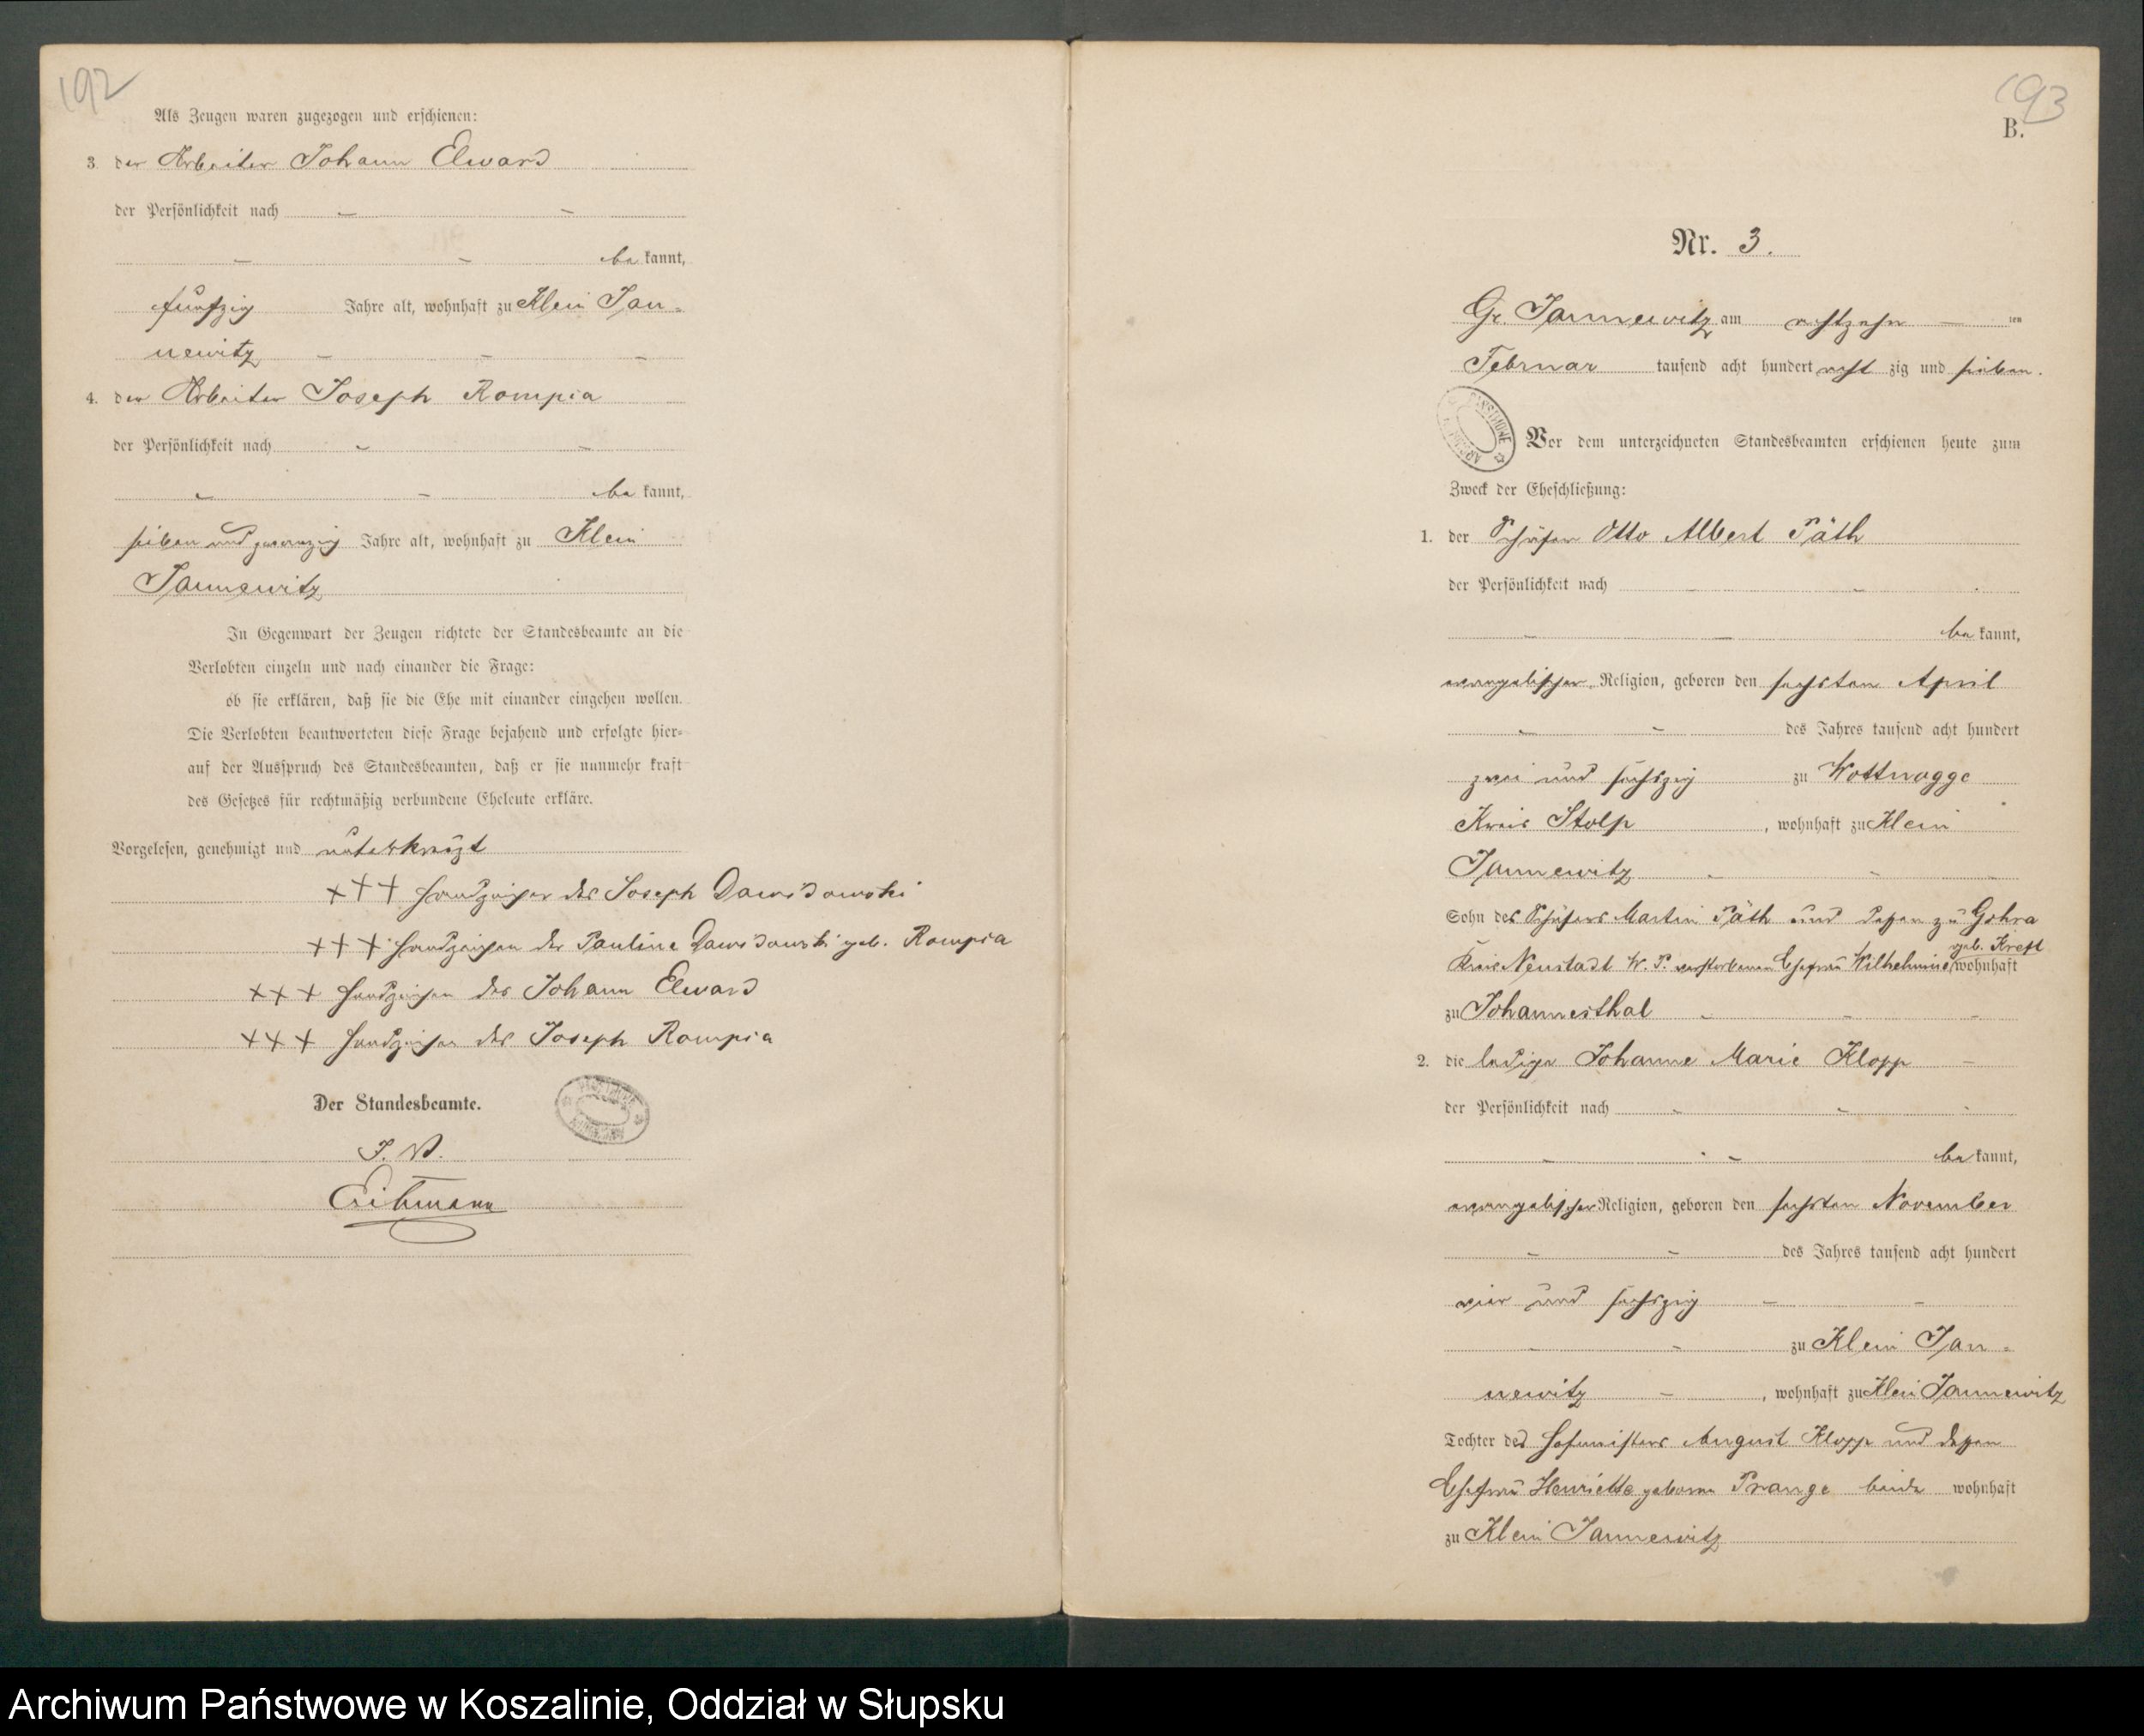 192
Als Zeugen waren zugezogen und erschienen:
3. der Arbeiter Johann Elward
der Persönlichkeit nach
be kannt,
fünfzig Jahre alt, wohnhaft zu Klein Jan-
newitz
4. der Arbeiter Joseph Rompia
der Persönlichkeit nach
be kannt,
sieben und zwanzig Jahre alt, wohnhaft zu Klein
Jannewitz
In Gegenwart der Zeugen richtete der Standesbeamte an die
Verlobten einzeln und nach einander die Frage:
ob sie erklären, daß sie die Ehe mit einander eingehen wollen.
Die Verlobten beantworteten diese Frage bejahend und erfolgte hier-
auf der Ausspruch des Standesbeamten, daß er sie nunmehr kraft
des Gesetzes für rechtmäßig verbundene Eheleute erkläre.
Vorgelesen, genehmigt und unterkreuzt
+++ Handzeichen des Joseph Dawidowski
+++ Handzeichen der Pauline Dawidowski geb. Rompia
+++ Handzeichen des Johann Elward
+++ Handzeichen des Joseph Rompia
Der Standesbeamte.
J. V.
193
B.
Nr. 3.
Gr. Jannewitz am achtzehn ten
Februar tausend acht hundert acht zig und sieben.
Vor dem unterzeichneten Standesbeamten erschienen heute zum
Zweck der Eheschließung:
1. der Schäfer Otto Albert Päth
der Persönlichkeit nach
be kannt,
evangelischer Religion, geboren den sechsten April
des Jahres tausend acht hundert
zwei und sechszig zu Wottnogge
Kreis Stolp, wohnhaft zu Klein
Jannewitz
Sohn des Schäfers Martin Päth und dessen zu Gohra
geb. Kreft
Kreis Neustadt W. P. verstorbenen Ehefrau Wilhelmine wohnhaft
zu Johannesthal
2. die ledige Johanne Marie Klopp
der Persönlichkeit nach
be kannt,
evangelischer Religion, geboren den sechsten November
des Jahres tausend acht hundert
vier und sechszig
zu Klein Jan-
newitz, wohnhaft zu Klein Jannewitz
Tochter des Hofmeisters August Klopp und dessen
Ehefrau Henriette geborene Prange beide wohnhaft
zu Klein Jannewitz
Archiwum Państwowe w Koszalinie, Oddział w Słupsku